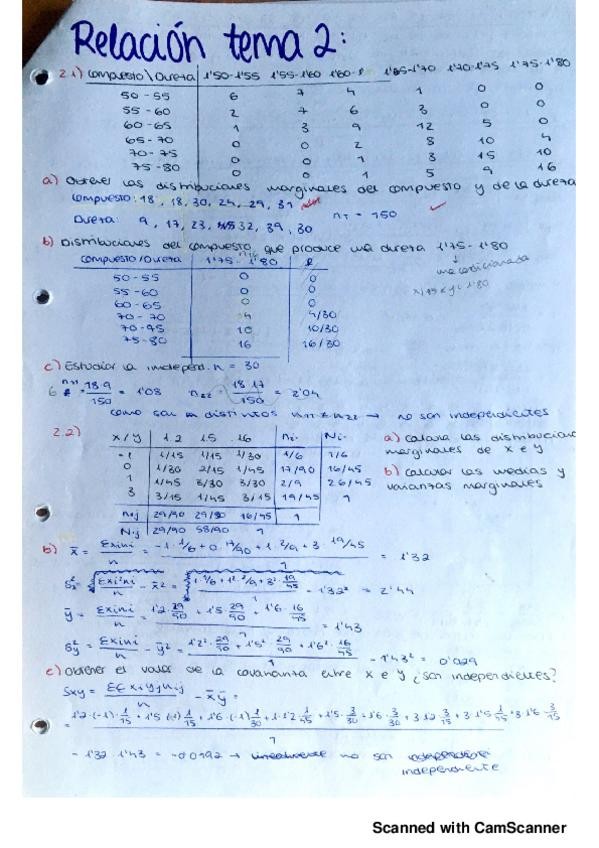 Relación tema 2:
2.1) Compuesto \ Dureza 1'50-1'55 1'55-1'60 1'60- 1'65-1'70 1'70-1'75 1'75-1'80
50-55 6 7 4 1 0 0
55-60 2 7 6 3 0 0
60-65 1 3 9 12 5 0
65-70 0 0 2 8 10 4
70-75 0 0 1 3 15 10
75-80 0 0 1 5 9 16
a) Obtener las distribuciones marginales del compuesto y de la dureza
Compuesto: 18, 18, 30, 24, 29, 31
Dureza: 9, 17, 23, 32, 39, 30 nT = 150
b) Distribuciones del compuesto que produce una dureza 1'75-1'80
Compuesto/Dureza 1'75-1'80
50-55 0 0
55-60 0 0
60-65 0 0
70-70 4 4/30
70-75 10 10/30
75-80 16 16/30
n = 30
c) Estudiar la independ.
6 ≠ 18·9/150 = 1'08 n22 = 18·17/150 = 2'04
como son distintos → no son independientes
2.2) x/y 1.2 1.5 1.6 ni· Ni·
-1 1/15 1/15 1/30 1/6 1/6
0 1/30 2/15 1/45 17/90 16/45
1 1/45 3/30 3/30 2/9 26/45
3 3/15 1/45 3/15 19/45 1
n·j 29/90 29/90 16/45 1
N·j 29/90 58/90 1
a) calcula las distribucion
marginales de x e y
b) calcular las medias y
varianzas marginales
b) x̄ = Σxini/n = -1·1/6+0·17/90+1·2/9+3·19/45 / 1 = 1'32
Sx² = Σxi²ni/n - x̄² = - 1'32² = 2'44
ȳ = Σxini/n = 1'2·29/90+1'5·29/90+1'6·16/45 / 1 = 1'43
Sy² = Σxini/n - ȳ² = 1'2²·29/90+1'5²·29/90+1'6²·16/45 / 1 - 1'43² = 0'029
c) Obtener el valor de la covarianza entre x e y ¿son independientes?
Sxy = ΣΣxiyjnij/n - x̄ȳ =
1'2·(-1)·1/15+1'5·(-1)·1/15+1'6·(-1)·1/30+1·1'2·1/45+1'5·3/30+1'6·3/30+3·1'2·3/15+3·1'5·1/45+3·1'6·3/15
1
- 1'32·1'43 = -0'0192 → no son
independiente
Scanned with CamScanner